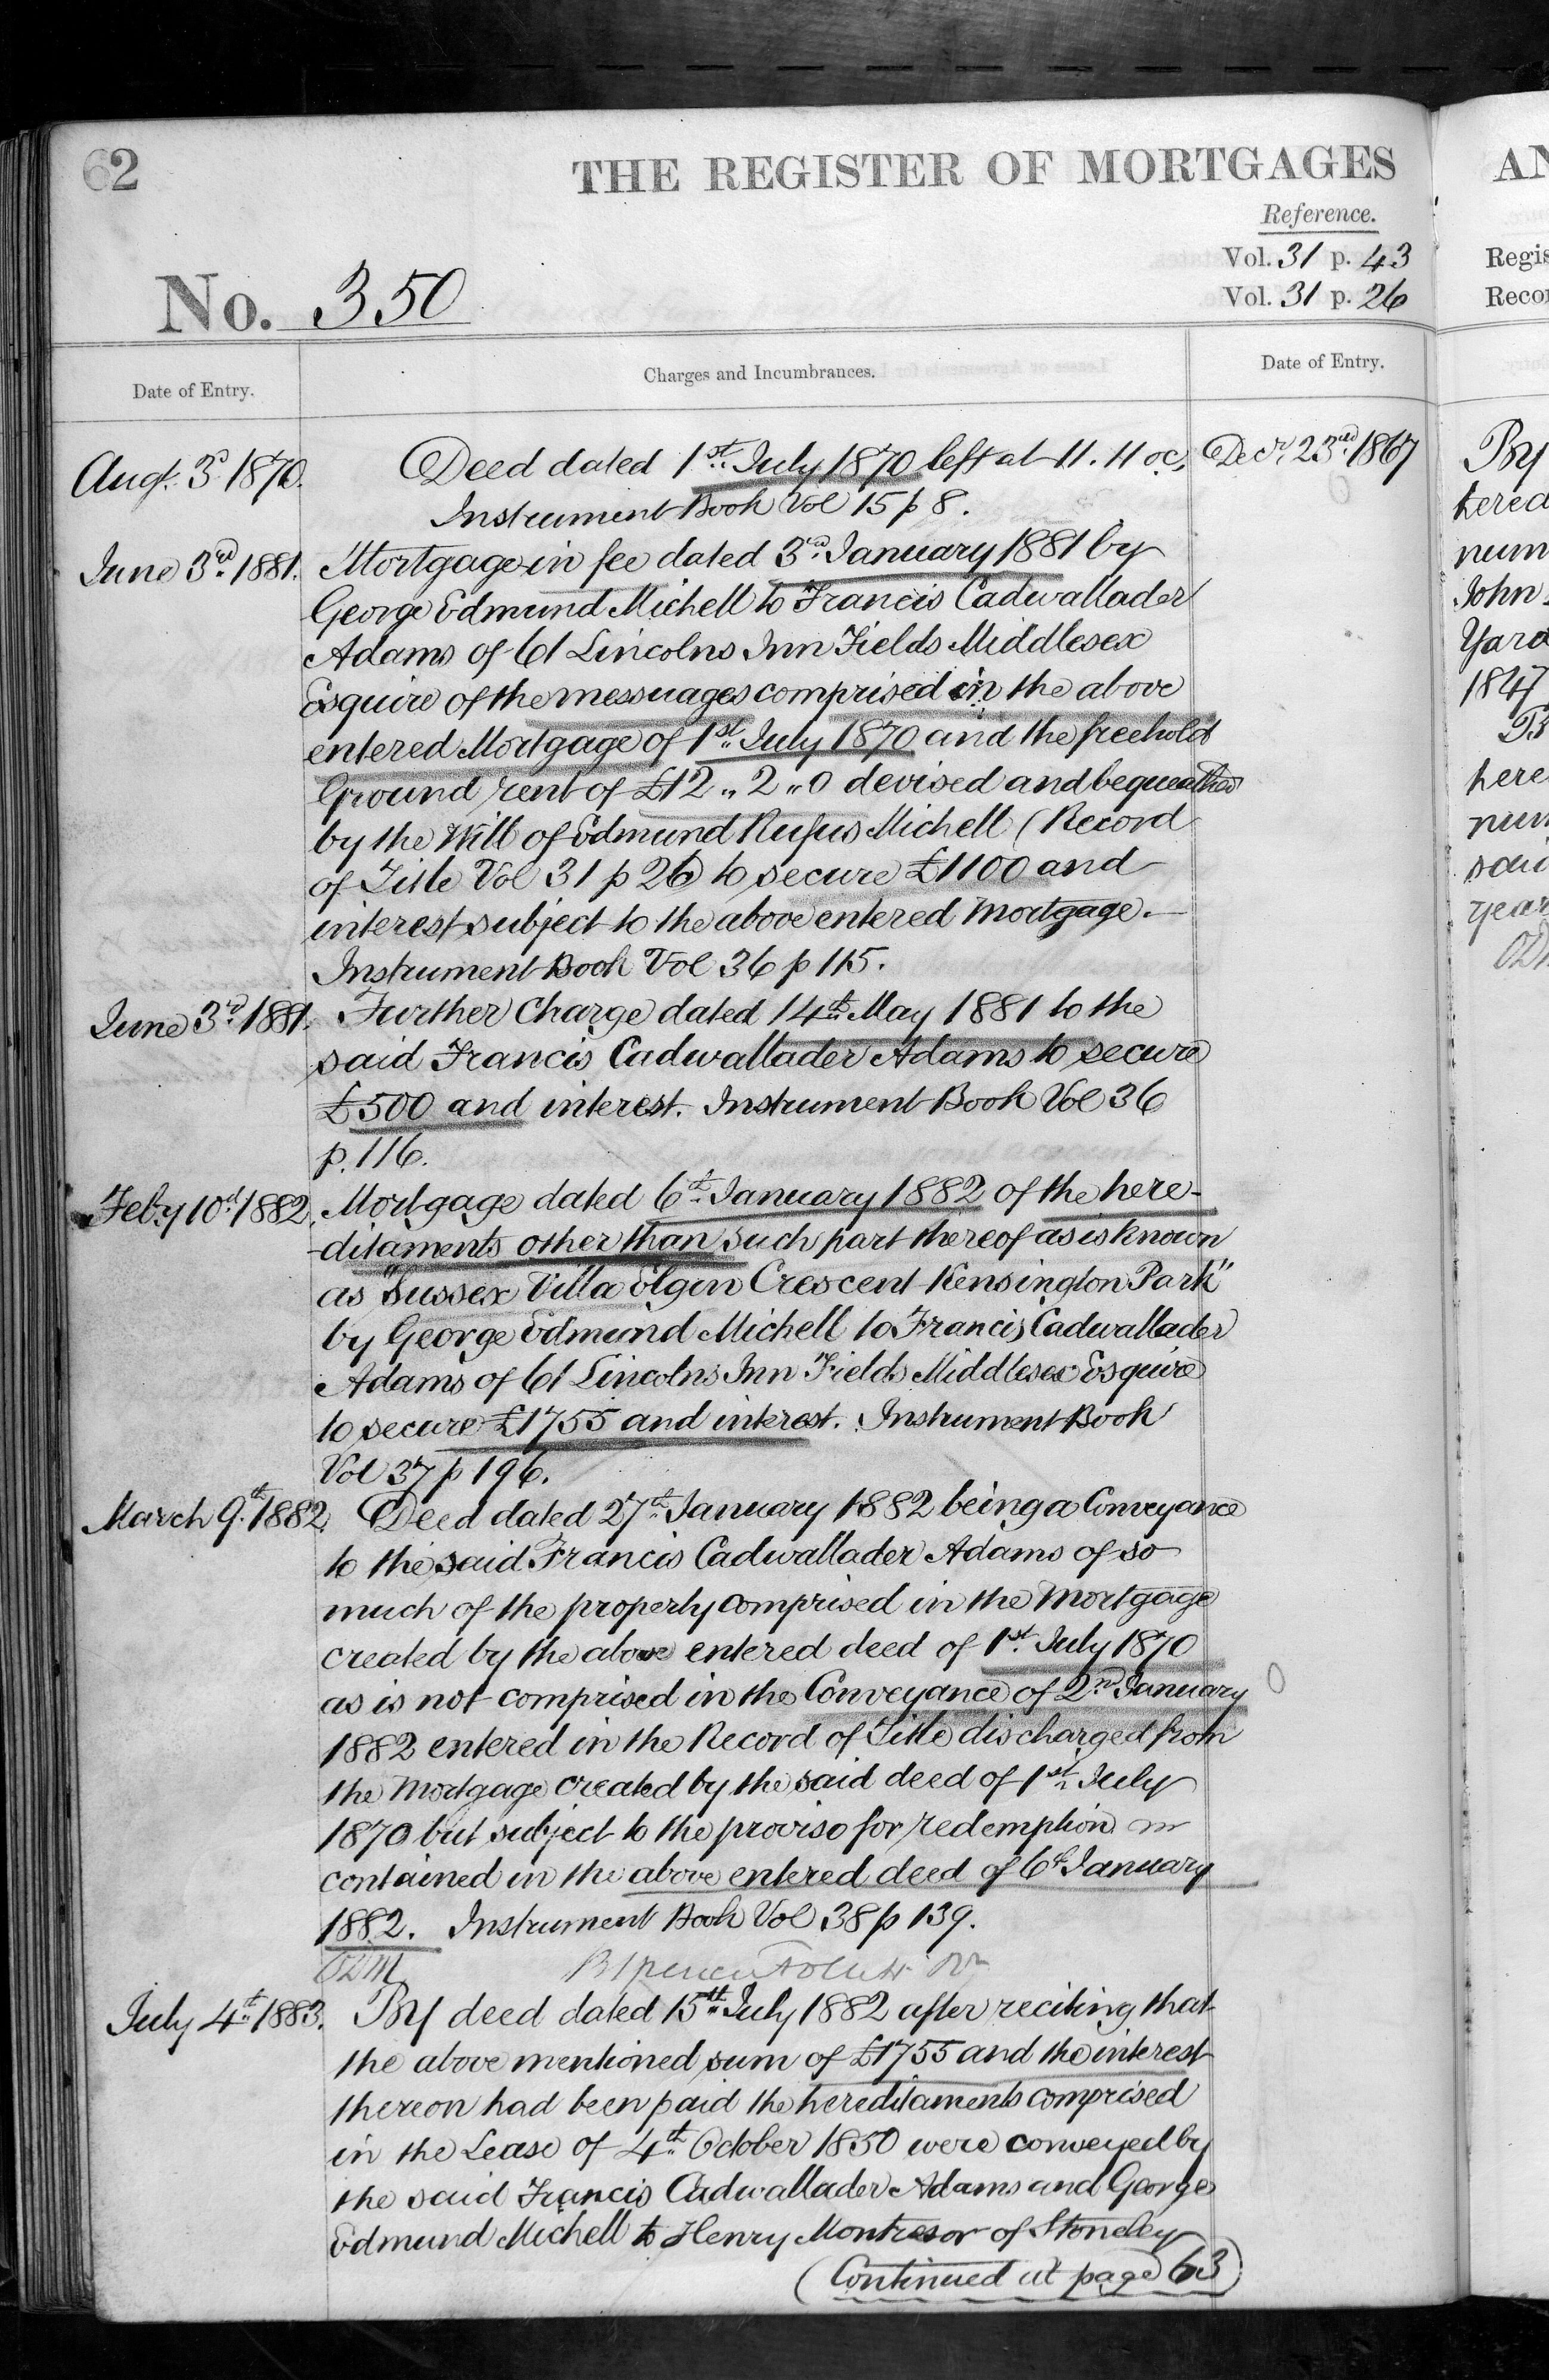 62
THE REGISTER OF MORTGAGES
Reference.
Vol. 31 p. 43
Vol. 31 p. 26
No. 350
Date of Entry.
Charges and Incumbrances.
Date of Entry.
Augt. 3rd 1870.
Deed dated 1st July 1870 left at 11. 11 oc,
Instrument Book Vol 15 p 8.
June 3rd 1881.
Mortgage in fee dated 3rd January 1881 by
George Edmund Michell to Francis Cadwallader
Adams of 61 Lincolns Inn Fields Middlesex
Esquire of the messuages comprised in the above
entered Mortgage of 1st July 1870 and the freehold
Ground rent of £12 " 2 " 0 devised and bequeathed
by the Will of Edmund Rufus Michell (Record
of Title Vol 31 p 26) to secure £1100 and
interest subject to the above entered Mortgage.—
Instrument Book Vol 36 p 115.
June 3rd 1881.
Further Charge dated 14th May 1881 to the
said Francis Cadwallader Adams to secure
£500 and interest. Instrument Book Vol 36
p. 116.
Feby 10th 1882.
Mortgage dated 6th January 1882 of the here-
-ditaments other than such part thereof as is known
as "Sussex Villa Elgin Crescent Kensington Park"
by George Edmund Michell to Francis Cadwallader
Adams of 61 Lincolns Inn Fields Middlesex Esquire
to secure £1755 and interest. Instrument Book
Vol 37 p 196.
March 9th 1882.
Deed dated 27th January 1882 being a Conveyance
to the said Francis Cadwallader Adams of so
much of the property comprised in the Mortgage
created by the above entered deed of 1st July 1870
as is not comprised in the Conveyance of 2nd January
1882 entered in the Record of Title discharged from
the Mortgage created by the said deed of 1st July
1870 but subject to the proviso for redemption
contained in the above entered deed of 6th January
1882. Instrument Book Vol 38 p 139.
July 4th 1883.
By deed dated 15th July 1882 after reciting that
the above mentioned sum of £1755 and the interest
thereon had been paid the hereditaments comprised
in the Lease of 4th October 1850 were conveyed by
the said Francis Cadwallader Adams and George
Edmund Michell to Henry Montresor of Stoneley
(Continued at page 63)
Decr. 23rd 1867
AN
Regis
Recor
By
tered
num
John
Yard
1847
B
here
num
said
year